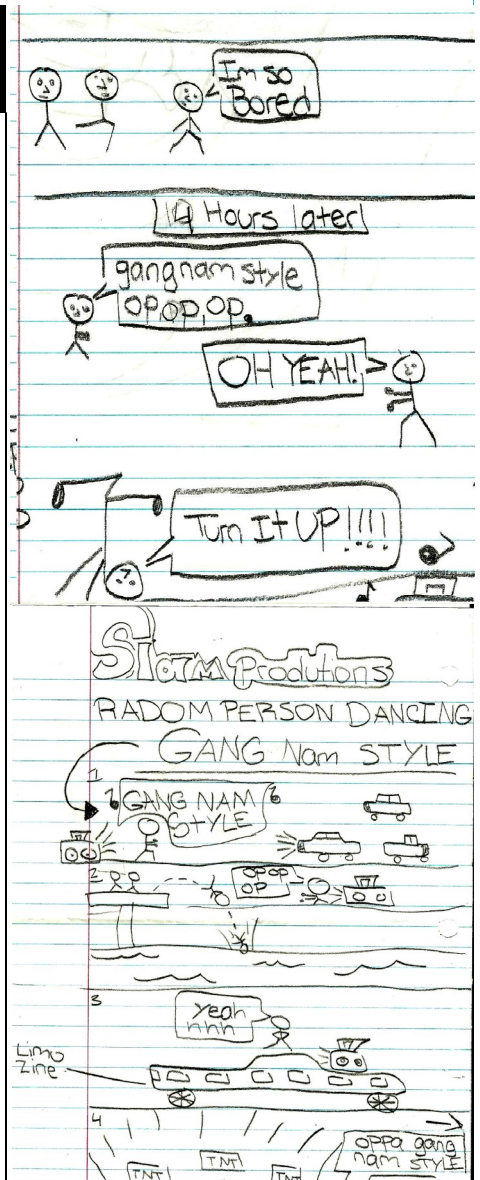 Im so
Bored
Hours later
gangnam style
OP,OP,OP.
OH YEAH!
Turn It UP!!!!
Produtions
RADOM PERSON DANCING
GANG Nam STYLE
1
GANG NAM
STYLE
2
OP OP
OP
3
yeah
hhh
Limo
Zine
4
TNT
TNT
TNT
OPPA gang
nam STYLE